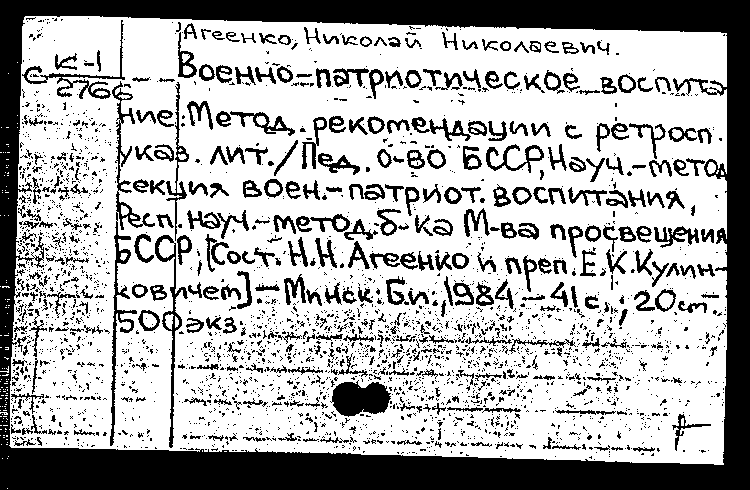 Агеенко, Николай Николаевич.
К-1
С 2766
Военно-патриотическое воспита
ние: Метод. рекомендации с ретросп.
указ. лит. / Пед. о-во БССР, Науч.-метод
секция воен.-патриот. воспитания,
Респ. науч.-метод. б-ка М-ва просвещения
БССР, [Сост. Н.Н. Агеенко и преп. Е.К. Кулин-
кович]. — Минск: Б.и., 1984. — 41 с. ; 20 см. —
500 экз.